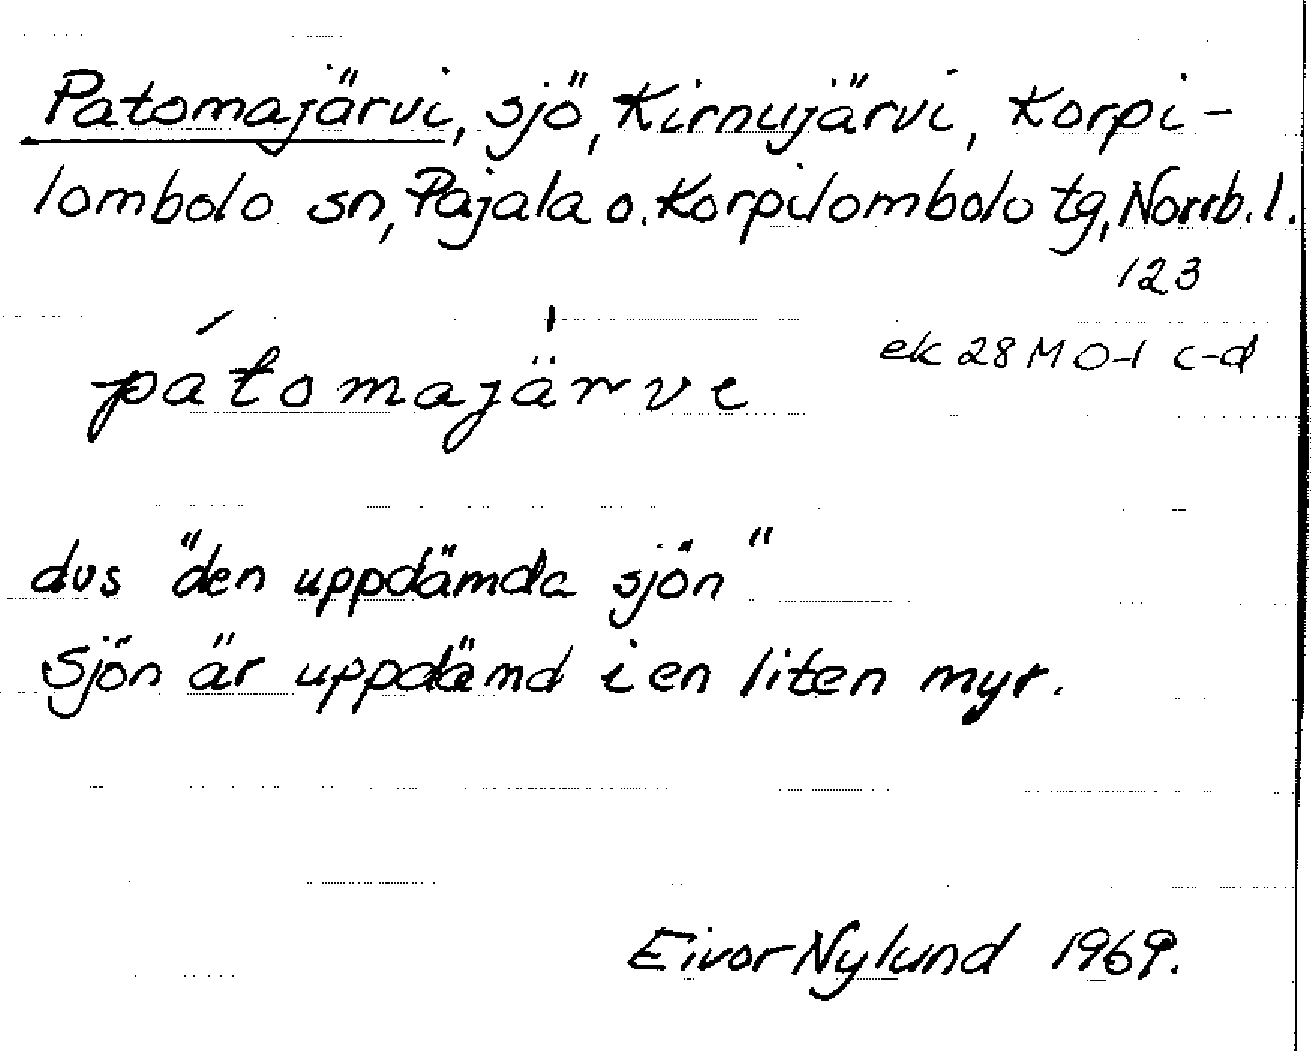 Patomajärvi, sjö, Kirnujärvi, Korpi-
lombolo sn, Pajala o. Korpilombolo tg, Norrb. l.
123
pátomajärve
ek 28 M 0-1 c-d
dvs "den uppdämda sjön"
Sjön är uppdämd i en liten myr.
Eivor Nylund 1969.